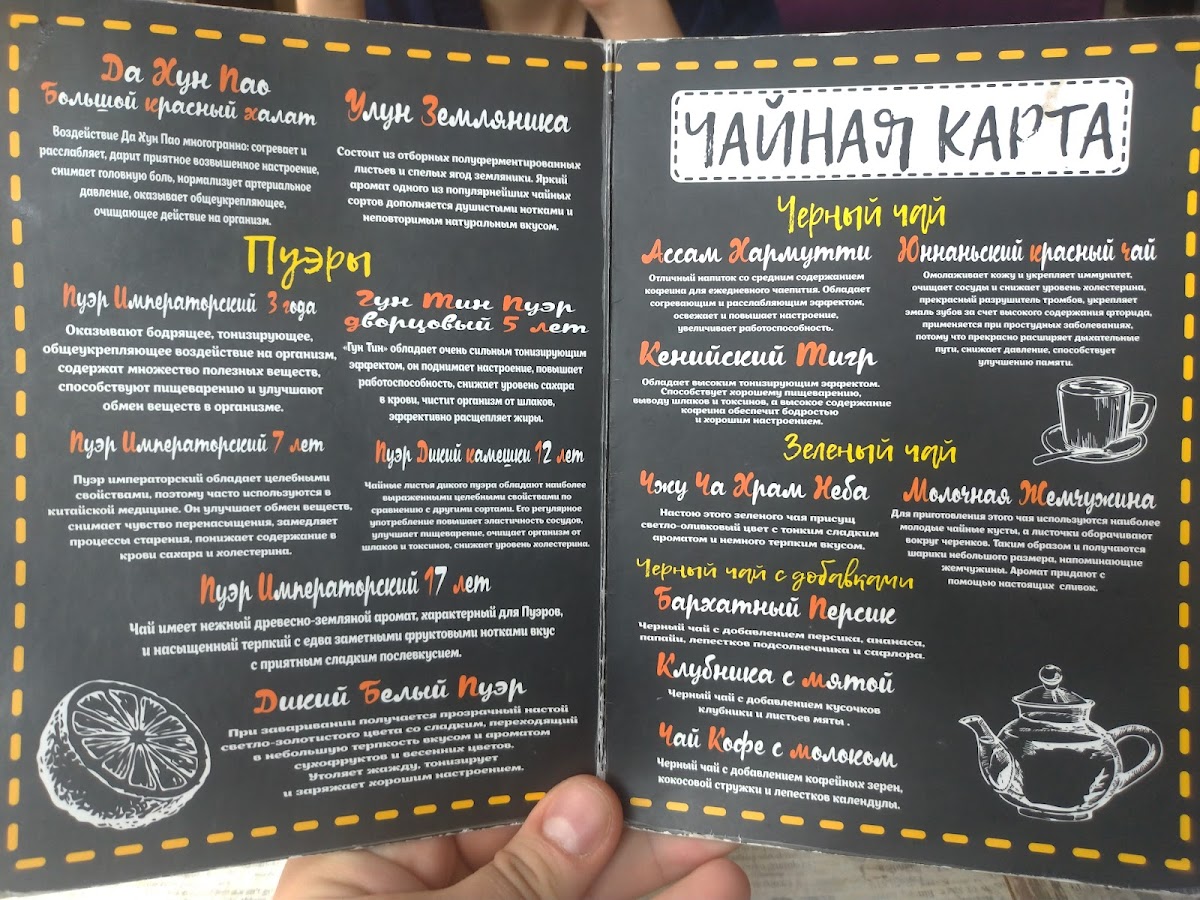 Да Хун Пао
Большой красный халат
Воздействие Да Хун Пао многогранно: согревает и
расслабляет, дарит приятное возвышенное настроение,
снимает головную боль, нормализует артериальное
давление, оказывает общеукрепляющее,
очищающее действие на организм.
Улун Земляника
Состоит из отборных полуферментированных
листьев и спелых ягод земляники. Яркий
аромат одного из популярнейших чайных
сортов дополняется душистыми нотками и
неповторимым натуральным вкусом.
Пуэры
Пуэр Императорский 3 года
Оказывают бодрящее, тонизирующее,
общеукрепляющее воздействие на организм,
содержат множество полезных веществ,
способствуют пищеварению и улучшают
обмен веществ в организме.
Гун Тин Пуэр
дворцовый 5 лет
«Гун Тин» обладает очень сильным тонизирующим
эффектом, он поднимает настроение, повышает
работоспособность, снижает уровень сахара
в крови, чистит организм от шлаков,
эффективно расщепляет жиры.
Пуэр Императорский 7 лет
Пуэр императорский обладает целебными
свойствами, поэтому часто используются в
китайской медицине. Он улучшает обмен веществ,
снимает чувство перенасыщения, замедляет
процессы старения, понижает содержание в
крови сахара и холестерина.
Пуэр Дикий камешки 12 лет
Чайные листья дикого пуэра обладают наиболее
выраженными целебными свойствами по
сравнению с другими сортами. Его регулярное
употребление повышает эластичность сосудов,
улучшает пищеварение, очищает организм от
шлаков и токсинов, снижает уровень холестерина.
Пуэр Императорский 17 лет
Чай имеет нежный древесно-земляной аромат, характерный для Пуэров,
и насыщенный терпкий с едва заметными фруктовыми нотками вкус
с приятным сладким послевкусием.
Дикий Белый Пуэр
При заваривании получается прозрачный настой
светло-золотистого цвета со сладким, переходящий
в небольшую терпкость вкусом и ароматом
сухофруктов и весенних цветов.
Утоляет жажду, тонизирует
и заряжает хорошим настроением.
ЧАЙНАЯ КАРТА
Черный чай
Ассам Хармутти
Отличный напиток со средним содержанием
кофеина для ежедневного чаепития. Обладает
согревающим и расслабляющим эффектом,
освежает и повышает настроение,
увеличивает работоспособность.
Юннаньский красный чай
Омолаживает кожу и укрепляет иммунитет,
очищает сосуды и снижает уровень холестерина,
прекрасный разрушитель тромбов, укрепляет
эмаль зубов за счет высокого содержания фторида,
применяется при простудных заболеваниях,
потому что прекрасно расширяет дыхательные
пути, снижает давление, способствует
улучшению памяти.
Кенийский Тигр
Обладает высоким тонизирующим эффектом.
Способствует хорошему пищеварению,
выводу шлаков и токсинов, а высокое содержание
кофеина обеспечит бодростью
и хорошим настроением.
Зеленый чай
Чжу Ча Храм Неба
Настою этого зеленого чая присущ
светло-оливковый цвет с тонким сладким
ароматом и немного терпким вкусом.
Молочная Жемчужина
Для приготовления этого чая используются наиболее
молодые чайные кусты, а листочки оборачивают
вокруг черенков. Таким образом и получаются
шарики небольшого размера, напоминающие
жемчужины. Аромат придают с
помощью настоящих сливок.
Черный чай с добавками
Бархатный Персик
Черный чай с добавлением персика, ананаса,
папайи, лепестков подсолнечника и сафлора.
Клубника с мятой
Черный чай с добавлением кусочков
клубники и листьев мяты .
Чай Кофе с молоком
Черный чай с добавлением кофейных зерен,
кокосовой стружки и лепестков календулы.